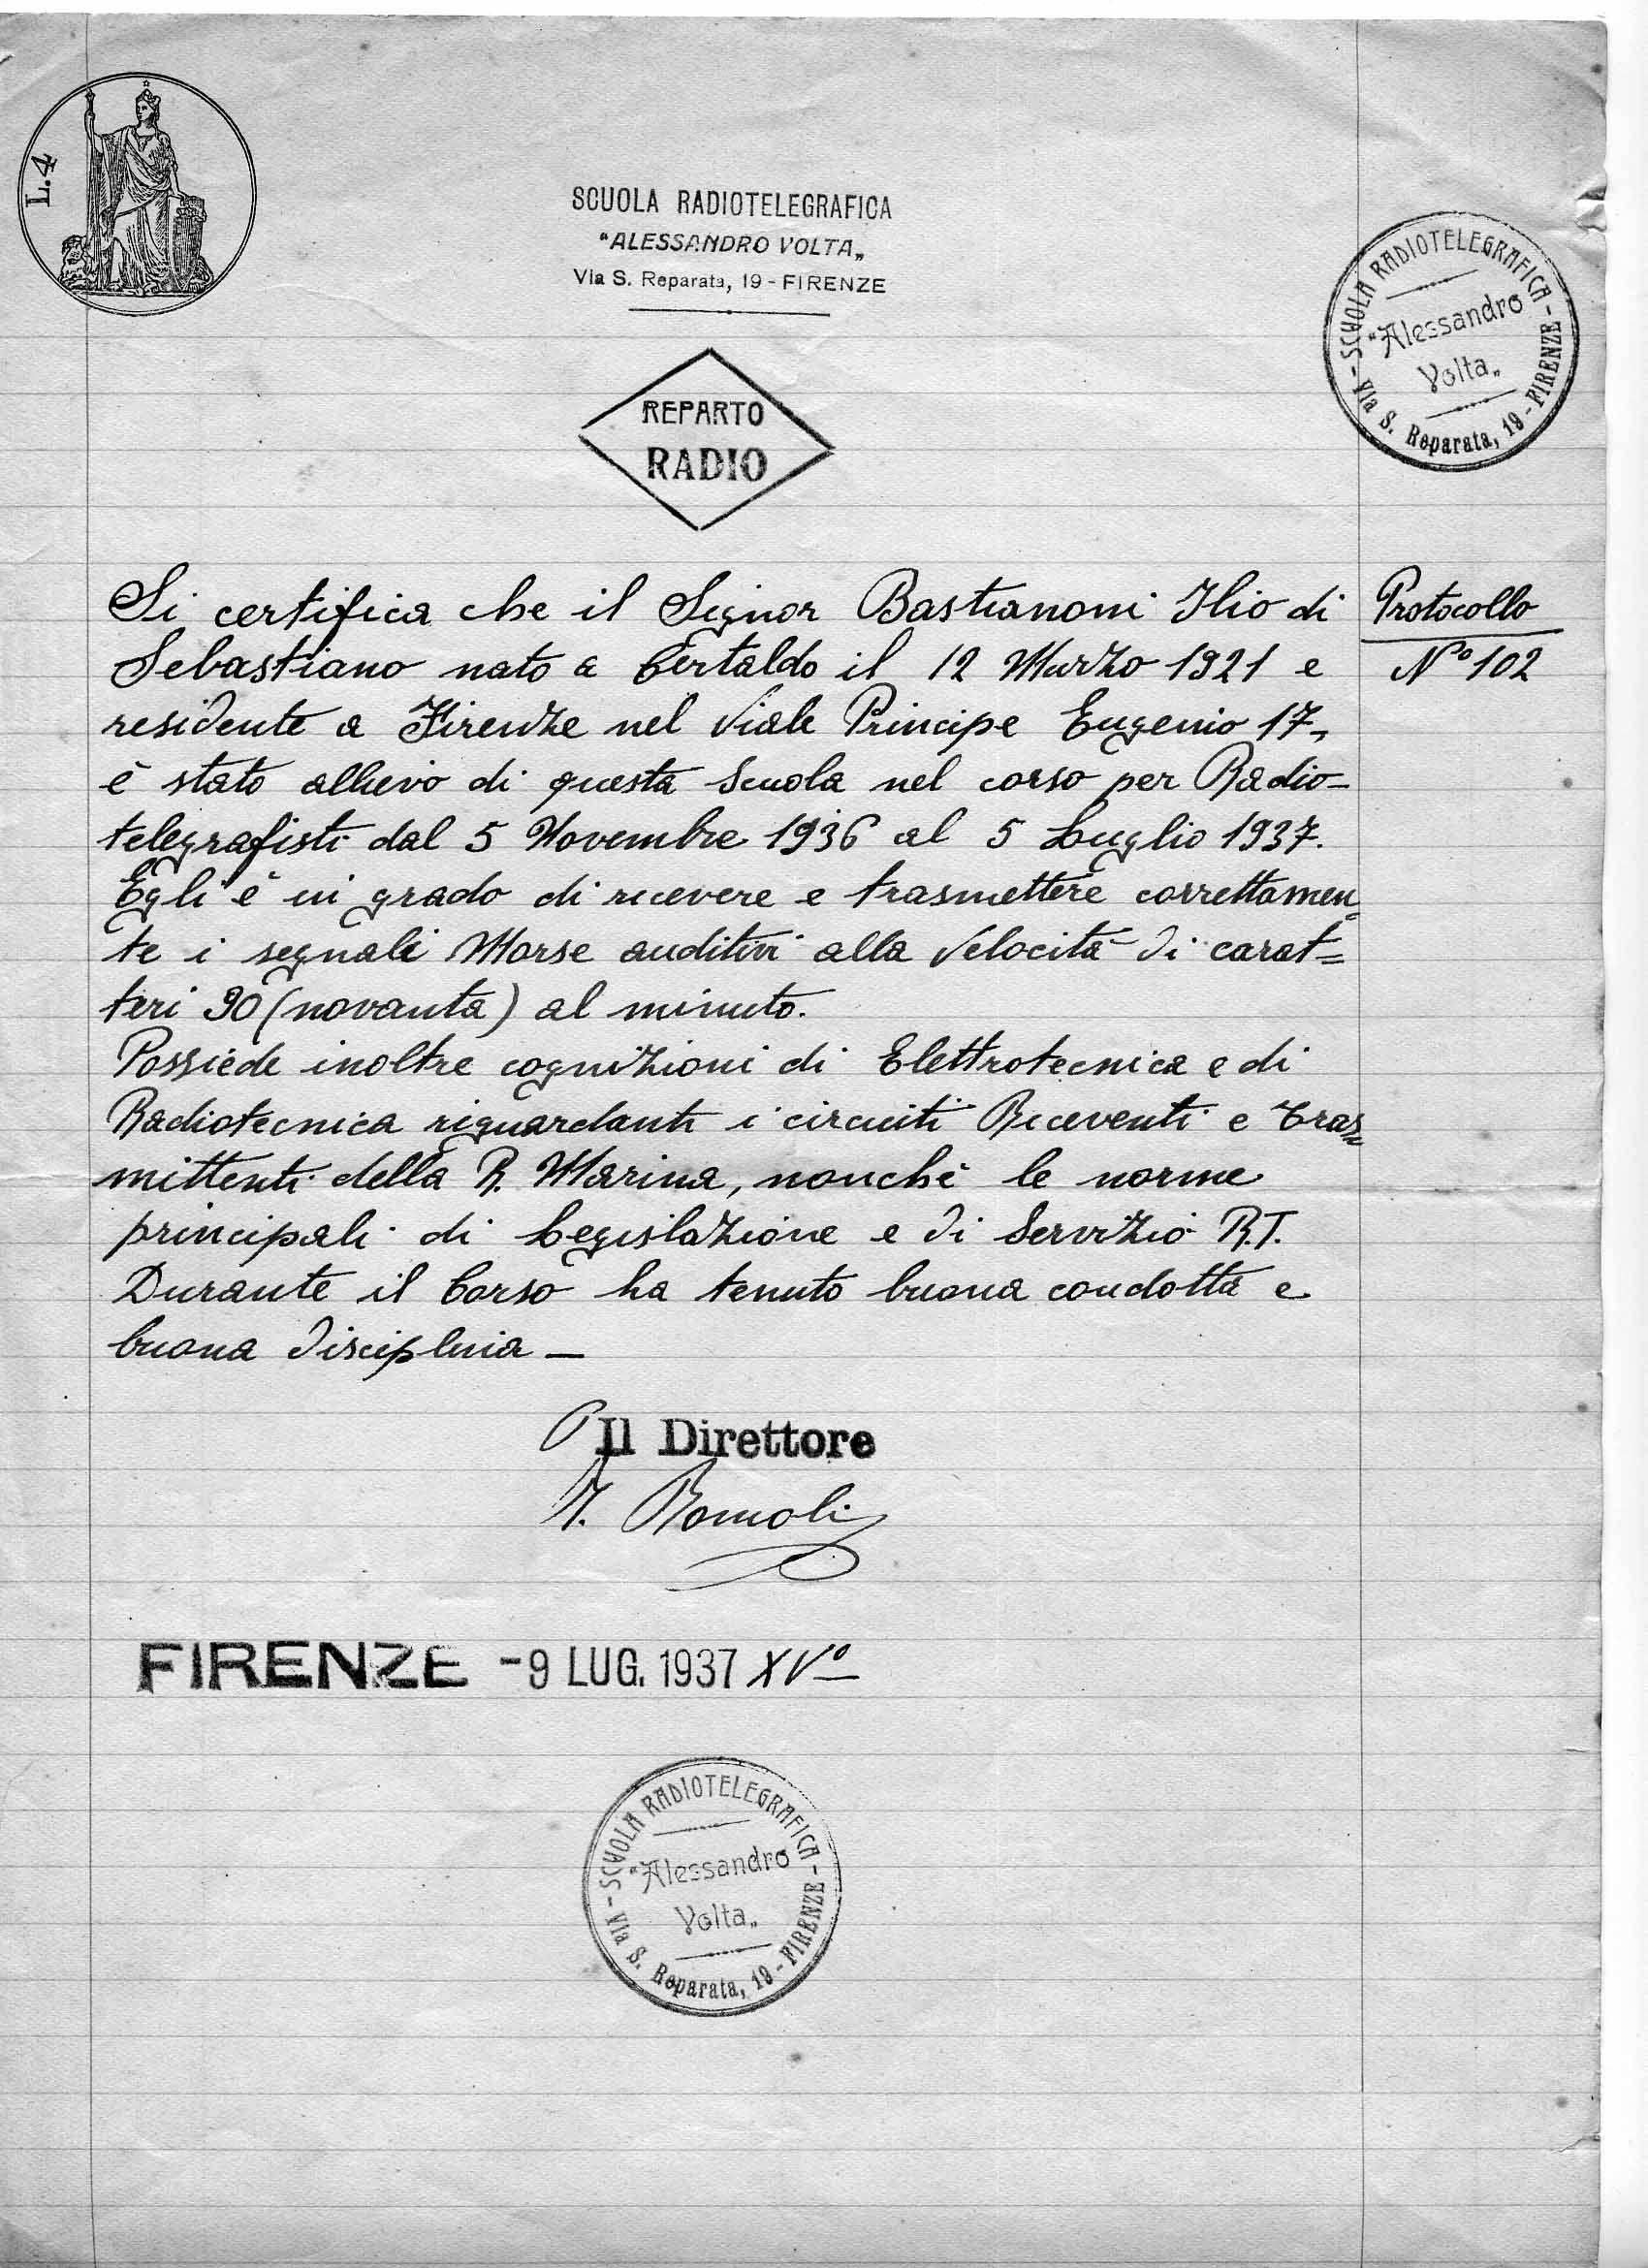 L. 4
SCUOLA RADIOTELEGRAFICA
"ALESSANDRO VOLTA„
Via S. Reparata, 19 - FIRENZE
- SCUOLA RADIOTELEGRAFICA -
"Alessandro
Volta„
Via S. Reparata, 19 - FIRENZE
REPARTO
RADIO
Si certifica che il Signor Bastianoni Ilio di
Sebastiano nato a Certaldo il 12 Marzo 1921 e
residente a Firenze nel Viale Principe Eugenio 17,
è stato allievo di questa Scuola nel corso per Radio-
telegrafisti dal 5 Novembre 1936 al 5 Luglio 1937.
Egli è in grado di ricevere e trasmettere correttamen=
te i segnali Morse auditivi alla velocità di carat=
teri 90 (novanta) al minuto.
Possiede inoltre cognizioni di Elettrotecnica e di
Radiotecnica riguardanti i circuiti Riceventi e Tras=
mittenti della R. Marina, nonchè le norme
principali di Legislazione e di Servizio R.T.
Durante il Corso ha tenuto buona condotta e
buona disciplina —
Protocollo
N° 102
P Il Direttore
I. Romoli
FIRENZE - 9 LUG. 1937 XV°
- SCUOLA RADIOTELEGRAFICA -
"Alessandro
Volta„
Via S. Reparata, 19 - FIRENZE